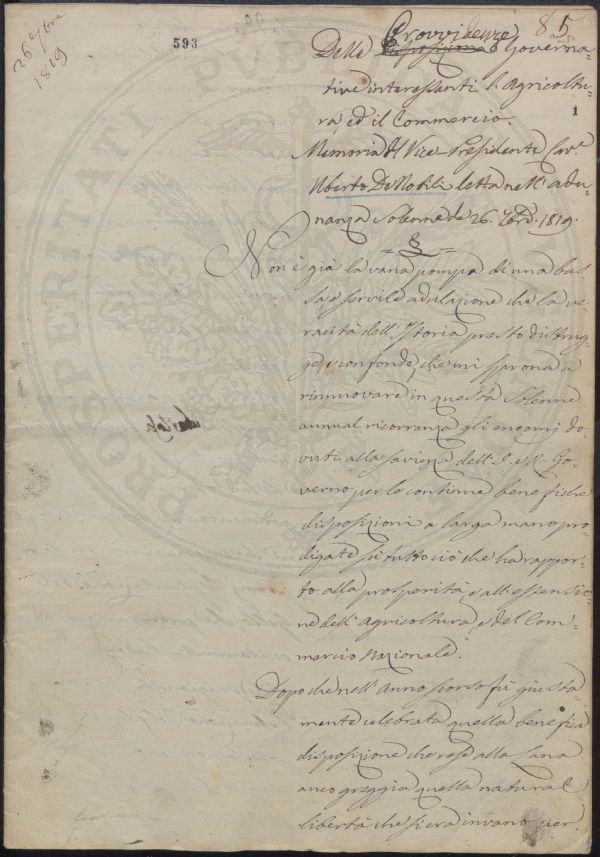 26 7bre
1819
593
85
1
Delle Provvidenze Governa-
tive interessanti l'Agricoltu-
ra, ed il Commercio.
Memoria del Vice-Presidente Cav.e
Uberto De Nobili letta nell'adu-
nanza Solenne de 26. 7bre 1819.
Non è già la vana pompa di una bas-
sa, e servile adulazione che la ve-
racità dell'Istoria presto distrug-
ge, e confonde, che mi sprona a
rinnuovare in questa Solenne
annual ricorrenza gli encomj do-
vuti alla saviezza dell'I. e R. Go-
verno per le continue benefiche
disposizioni a larga mano pro-
digate su tutto ciò che ha rappor-
to alla prosperità, e all'estensio-
ne dell'Agricoltura, e del Com-
mercio Nazionale.
Dopo che nell'Anno scorso fù giusta-
mente celebrata quella benefica
disposizione che rese alla Lana
anco greggia quella natural
libertà che si era invano per-
PROSPERITATI PUBLICAE